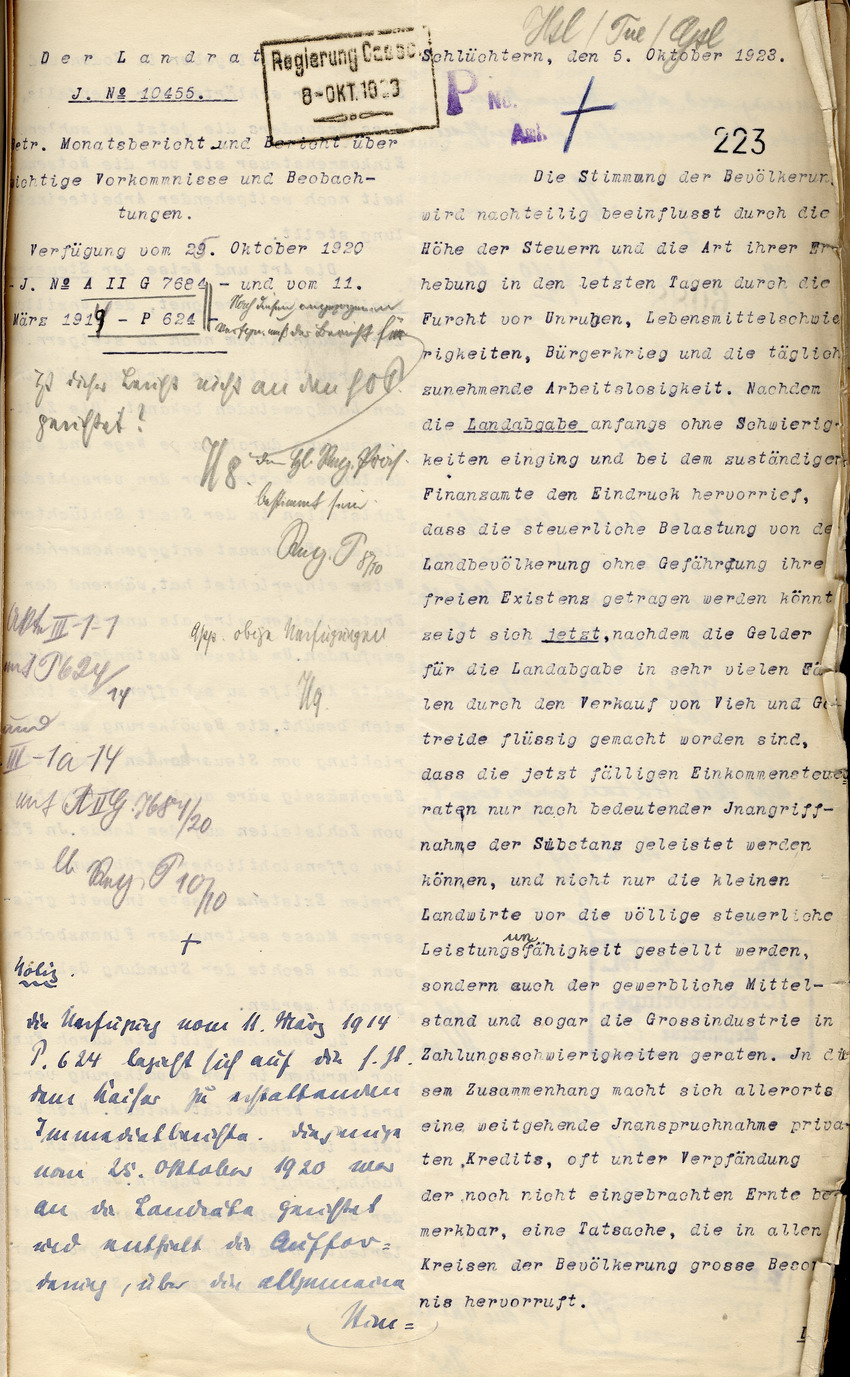 Der Landrat
J. № 10455.
Regierung Cassel
8-OKT.1923
Schlüchtern, den 5. Oktober 1923.
P No.
Anl.
223
Betr. Monatsbericht und Bericht über
wichtige Vorkommnisse und Beobach-
tungen.
Verfügung vom 25. Oktober 1920
- J. № A II G 7684 - und vom 11.
März 1914 - P 624 -
Ist dieser Bericht nicht an den
gerichtet?
bestimmt sein
Reg. P 8/10
obige Verfügungen
Akte III-1-1
mit P624/14
und
III-1a-14
mit A II G. 7684/20
Reg. P 10/10
Notiz.
Die Verfügung vom 11. März 1914
P. 624 bezieht sich auf die s. Zt.
dem Kaiser zu erstattenden
Immediatberichte. Diejenige
vom 25. Oktober 1920 war
an die Landräte gerichtet
und enthielt die Auffor=
derung, über die allgemeine
Stim=
Die Stimmung der Bevölkerun
wird nachteilig beeinflusst durch die
Höhe der Steuern und die Art ihrer Er-
hebung in den letzten Tagen durch die
Furcht vor Unruhen, Lebensmittelschwie
rigkeiten, Bürgerkrieg und die täglich
zunehmende Arbeitslosigkeit. Nachdem
die Landabgabe anfangs ohne Schwierig-
keiten einging und bei dem zuständigen
Finanzamte den Eindruck hervorrief,
dass die steuerliche Belastung von de
Landbevölkerung ohne Gefährdung ihre
freien Existenz getragen werden könnt
zeigt sich jetzt, nachdem die Gelder
für die Landabgabe in sehr vielen Fä
len durch den Verkauf von Vieh und Ge-
treide flüssig gemacht worden sind,
dass die jetzt fälligen Einkommensteuer
raten nur nach bedeutender Jnangriff-
nahme der Substanz geleistet werden
können, und nicht nur die kleinen
Landwirte vor die völlige steuerliche
Leistungsunfähigkeit gestellt werden,
sondern auch der gewerbliche Mittel-
stand und sogar die Grossindustrie in
Zahlungsschwierigkeiten geraten. Jn die
sem Zusammenhang macht sich allerorts
eine weitgehende Jnanspruchnahme priva-
ten Kredits, oft unter Verpfändung
der noch nicht eingebrachten Ernte be-
merkbar, eine Tatsache, die in allen
Kreisen der Bevölkerung grosse Besor
nis hervorruft.